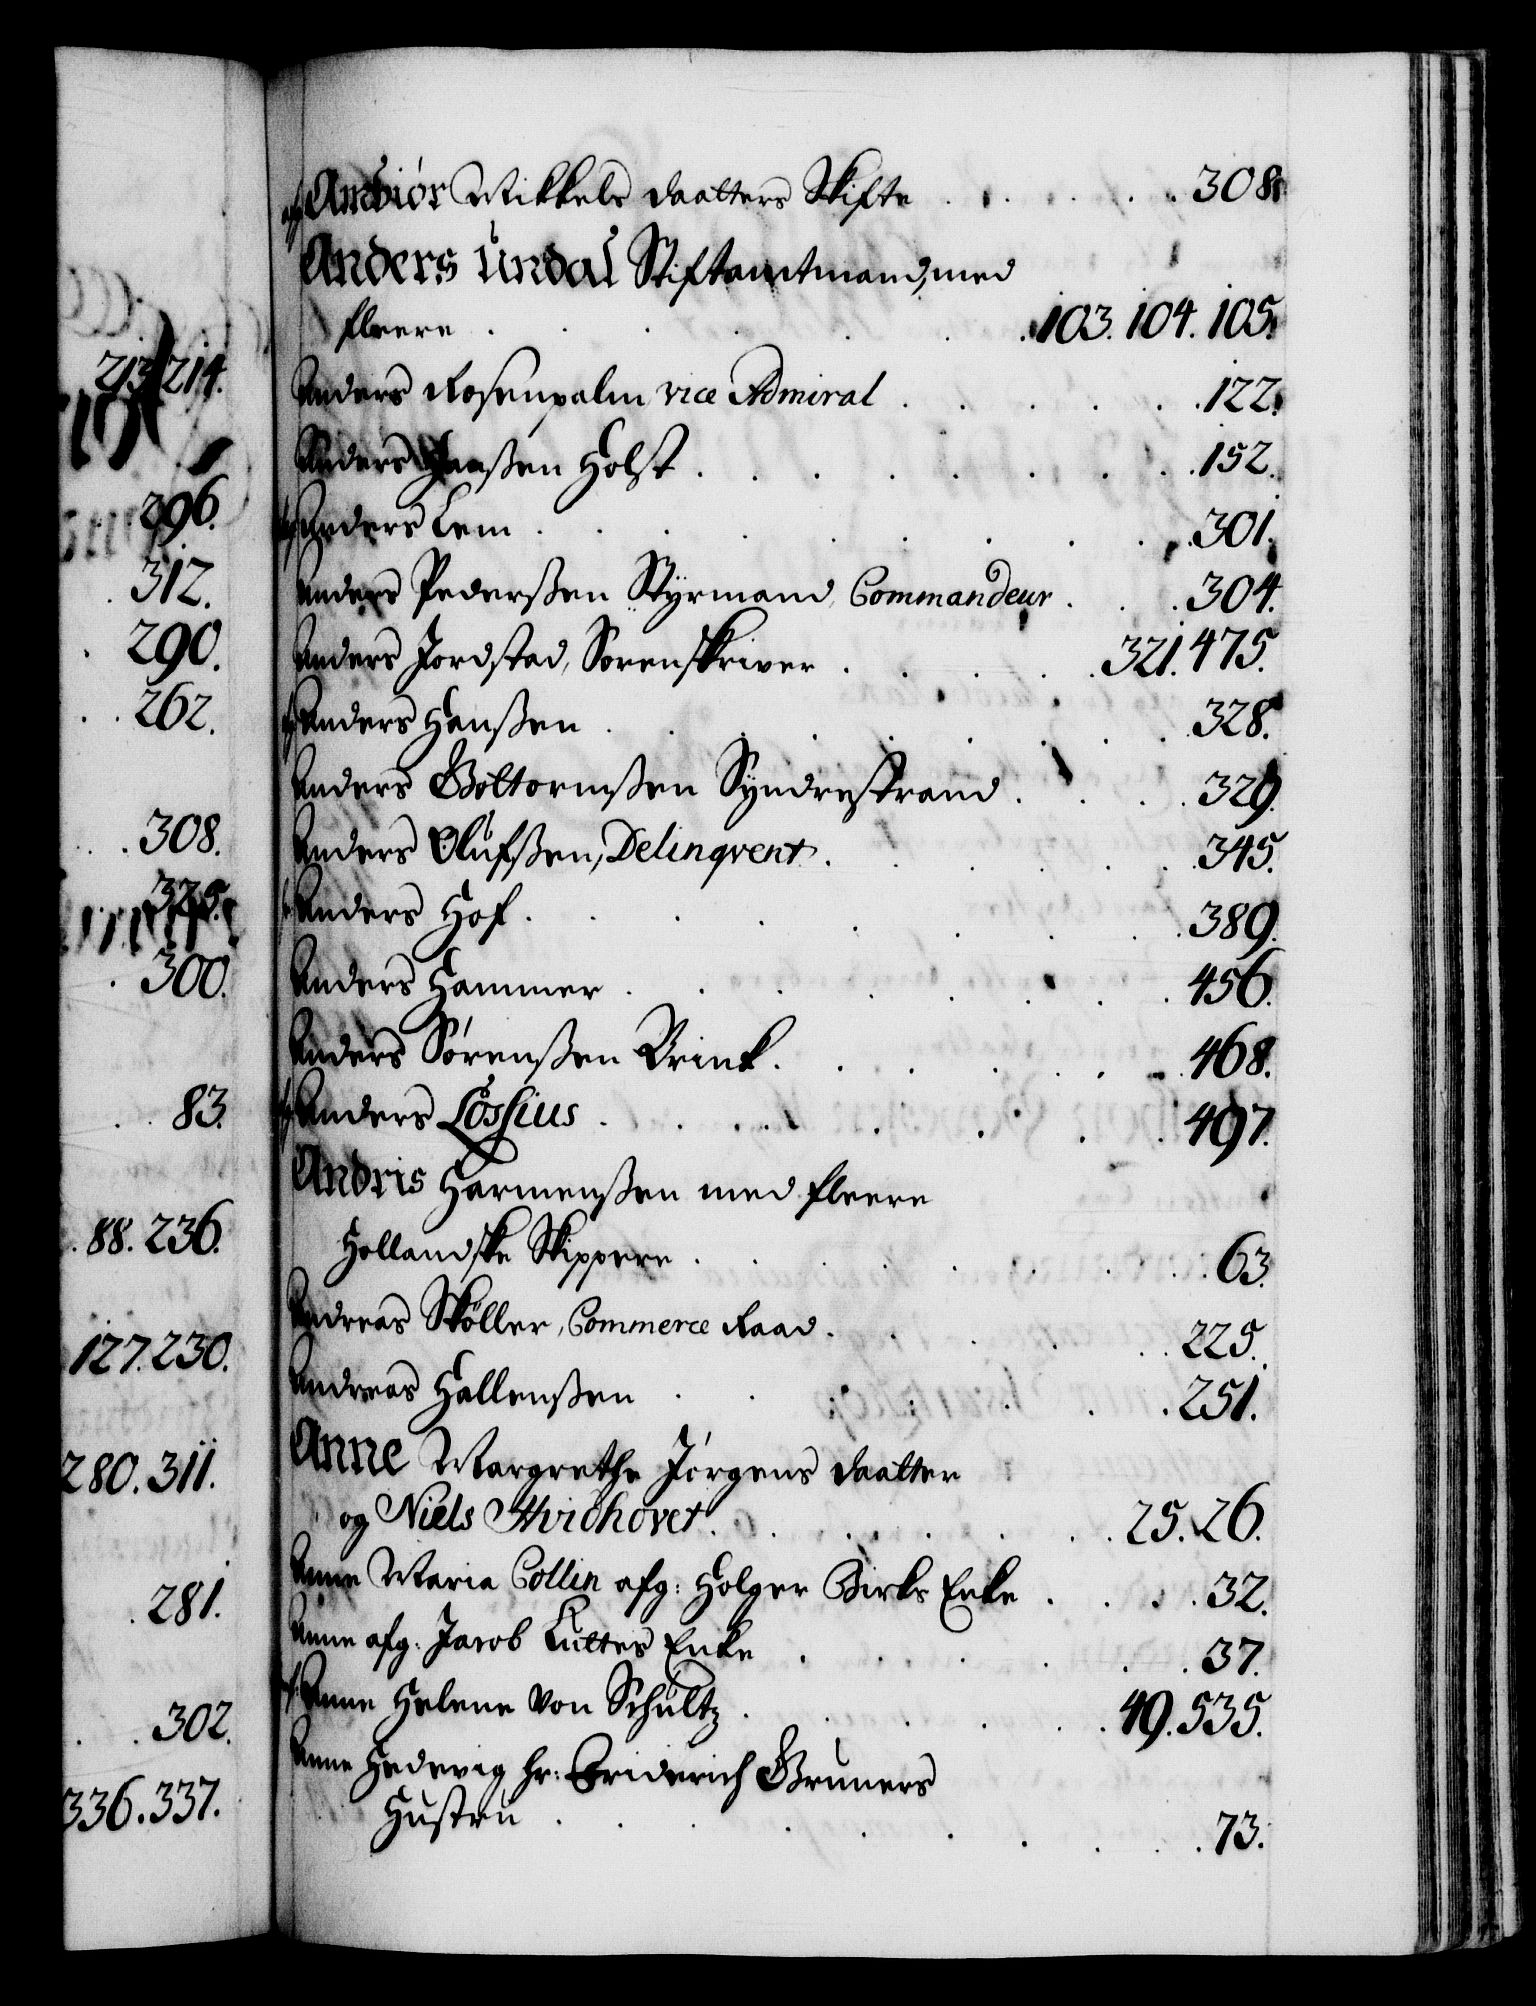 213. 214.
296.
312.
290.
262.
308.
325.
300.
83.
88. 236.
127. 230.
280. 311.
281.
302.
336. 337.
afg Ambiør Mikkels daatters Skifte . . . . . 308.
Anders Undal Stiftamtmand, med
fleere . . . . . 103. 104. 105.
Anders Rosenpalm vice Admiral . . . . . 122.
Anders Hanßen Holst . . . . . . . 152.
Anders Lem . . . . . . . . 301.
Anders Pederßen Styrmand, Commandeur . . . 304.
Anders Jordstad, Sorenskriver . . . . . 321. 475.
Anders Hanßen . . . . . . . . 328.
Anders Goltormßen Syndrestrand . . . . 329.
Anders Olufßen, Delinqvent . . . . . 345.
Anders Hof . . . . . . . 389.
Anders Hammer . . . . . . . . 456.
Anders Sørenßen Brink . . . . . . . 468.
Anders Lossius . . . . . . . . 497.
Andris Harmenßen med fleere
Hollandske Skippere . . . . . . . 63.
Andreas Møller, Commerce Raad . . . . . 225.
Andreas Hallenßen . . . . . . 251.
Anne Margrethe Jørgens daatter
og Niels Hvidhovet . . . . . . 25. 26.
Anne Maria Collin afg: Holger Birks Enke . . . . 32.
Anne afg: Jacob Luttes Enke . . . . . . 37.
Anne Helene von Schultz . . . . . . 49. 535.
Anne Hedevig hr: Friderich Gruners
Hustru . . . . . . . . 73.